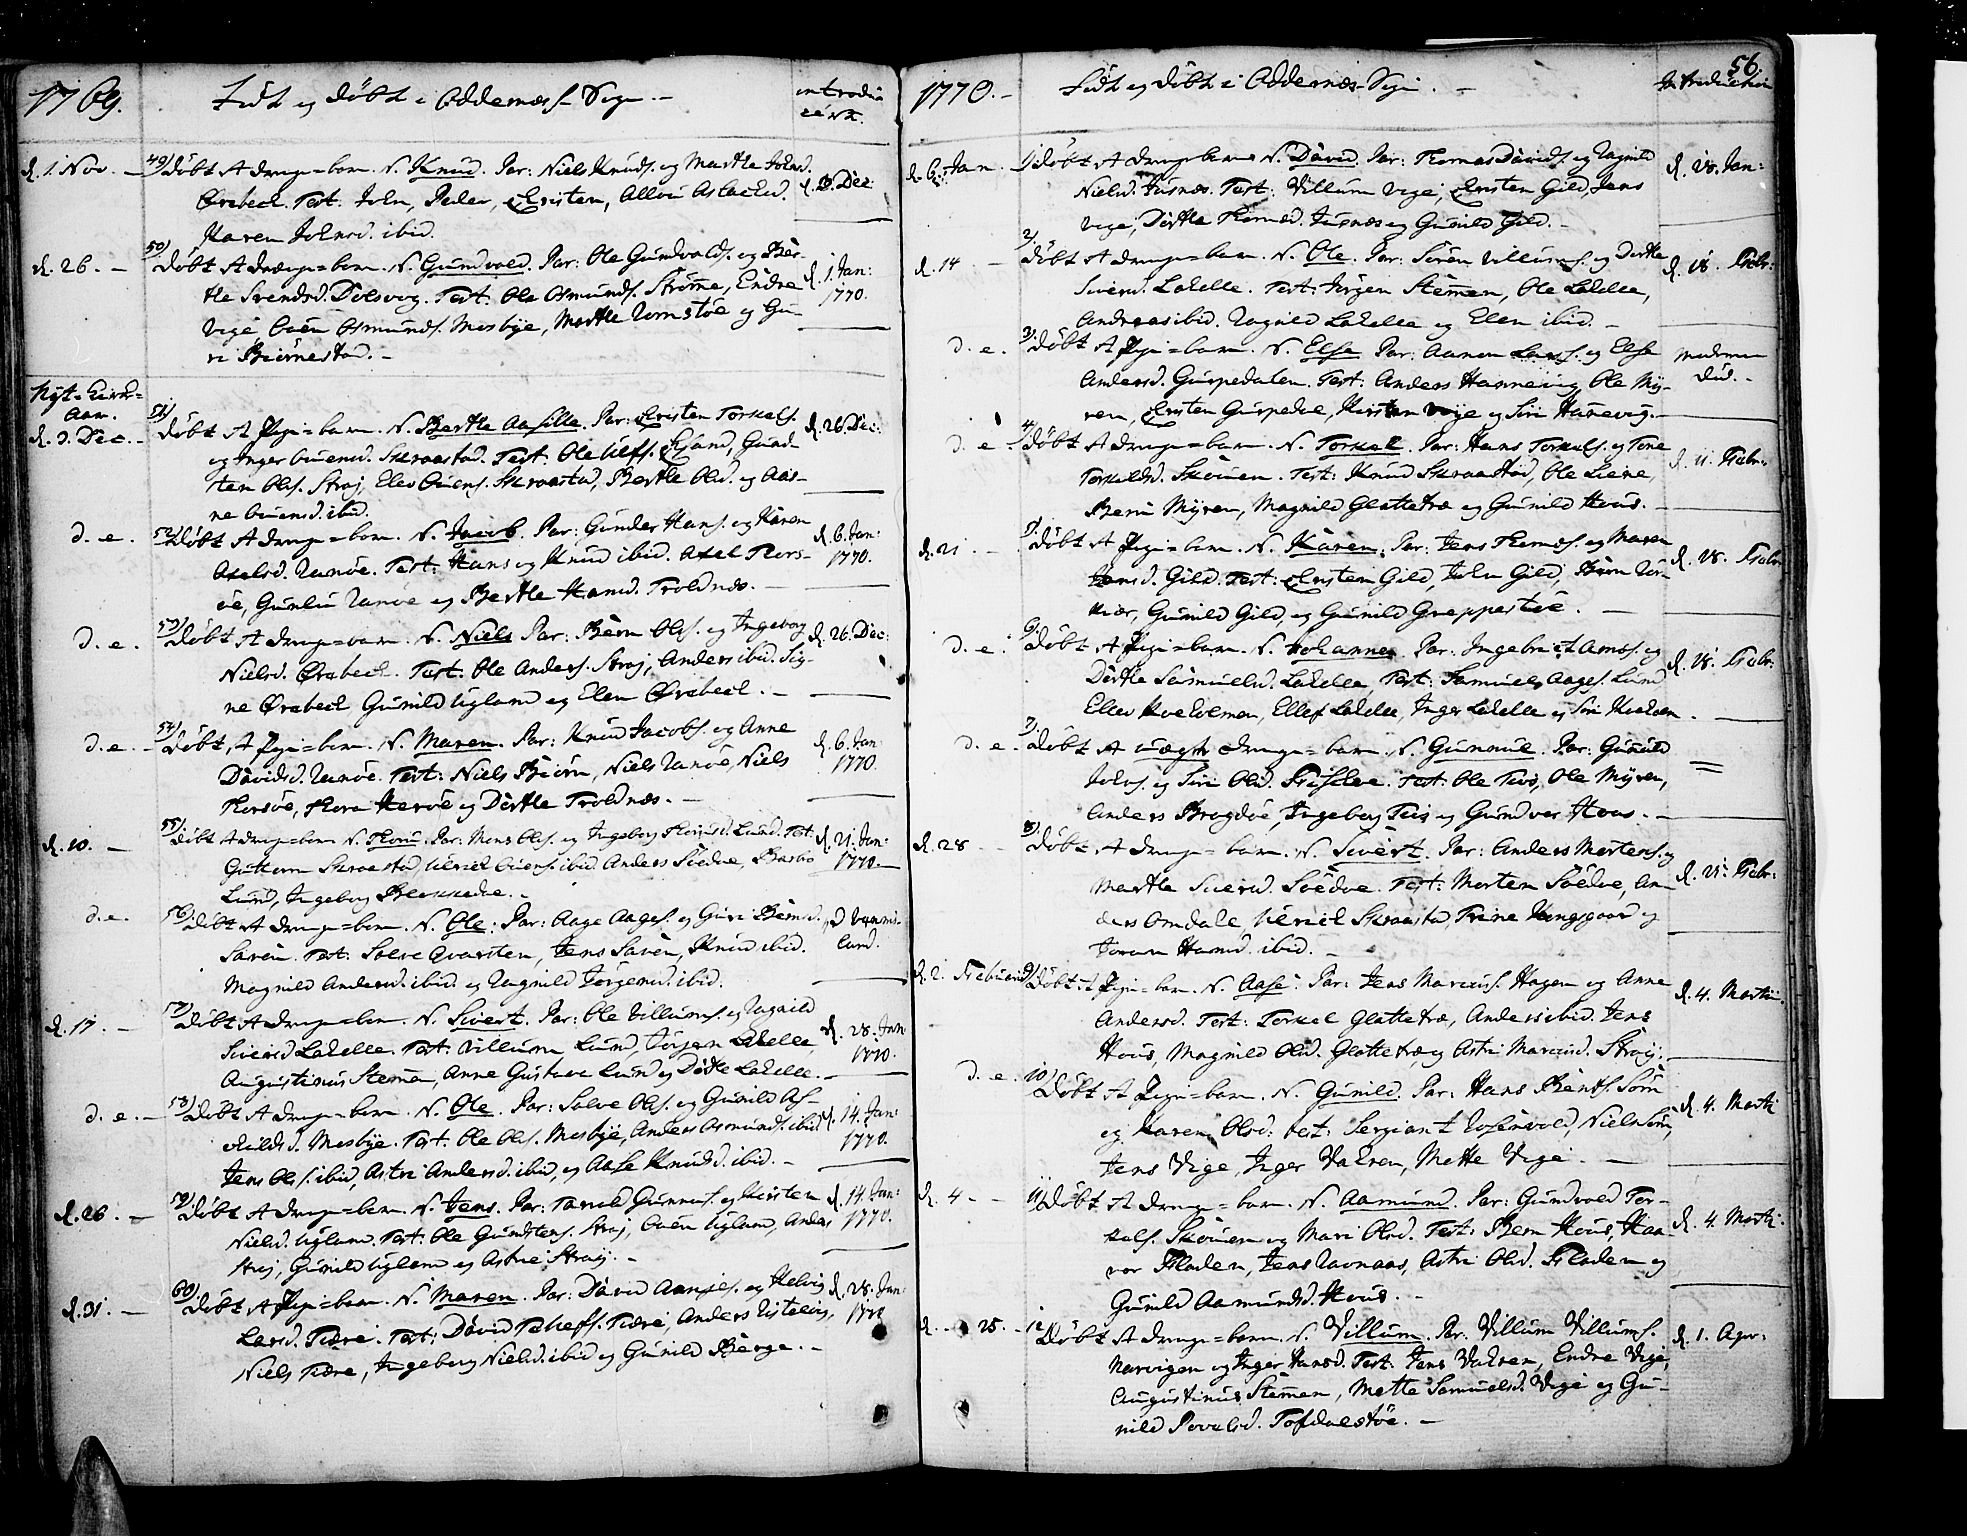 1769.
Födt og Döbt i Oddernæs Sogn.
introduction
d. 1. Nov. 49) Döbt 1 drenge-barn. N. Knud. Par: Niels Knuds. og Marthe Johnsd.
Örebech. Test: John, Peder, Christen,
Karen Johnsd. ibid.
d. 3. Dec:
d. 26. 50) Döbt 1 drenge-barn. N. Gundvald. Par: Ole Gundvalds. og Ber-
the Svendsd. Dolsveg. Test: Ole Osmunds. Strömme, Endre
Vige, Osmunds. Mosbye, Marthe og Gu-
ri Biörnestad.
d. 1. Jan: 1770.
Nyt-Kirke-
Aar.
d. 3. Dec. 51) Döbt 1 Pige-barn. N. Berthe Aasille. Par: Christen Torkels.
og Inger Ouensd. Skraastad. Test: Ole Chris-
ten Ols. Straj, Elev Ouens. Skraastad, Berthe Olsd. og Aas-
ne Ouensd. ibid.
d. 26. Dec:
d. e. 52) Döbt 1 drenge-barn. N. Jacob. Par: Gunder Hans. og Karen
Axelsd. Ranöe. Test: Hans og Knud ibid. Axel Thors-
öe, Ranöe og Berthe Hansd. Troldnæs.
d. 6. Jan: 1770.
d. e. 53) Döbt 1 drenge-barn. N. Niels. Par: Biörn Ols. og Ingeborg
Nielsd. Örebech. Test: Ole Anders. Straj, Anders ibid. Sig-
ne Örebech Gunild Ugland og Elen Örebech.
d. 26. Dec:
d. e. 54) Döbt 1 Pige-barn. N. Maren. Par: Knud Jacobs. og Anne
Davidsd. Ranöe. Test: Niels Biörn, Niels Ranöe, Niels
Thorsöe, Thora Heröe og Dorthe Troldnæs.
d. 6. Jan: 1770.
d. 10. 55) Döbt 1 drenge-barn N. Thorn. Par: Mons Ols. og Ingeborg Lund. Test:
Guttorm Skraastad, Ulrich Ouens. ibid. Anders Södve, Barbo
Lund, Ingeborg Blekkedve.
d. 21. Jan: 1770.
d. e. 56) Döbt 1 drenge-barn. N. Ole. Par: Aage Aages. og Guri
Saven. Test: Salve Qvarsten, Jens Saven, Knud ibid.
Magnild Andersd. ibid. og Ragnild Jörgensd. ibid.
d. 17. 57) Döbt 1 drenge-barn. N. Sivert. Par: Ole Villums. og Ragnild
Siversd. Lahelle. Test: Villum Lund, Jörgen Lahelle,
Augustinus Stemen, Anne Gustava Lund og Dorthe Lahelle.
d. 28. Jan: 1770.
d. e. 58) Döbt 1 drenge-barn. N. Ole. Par: Salve Ols. og Gunild As-
childsd. Mosbye. Test: Ole Ols. Mosbye, Anders Osmunds. ibid
Jens Ols. ibid, Astri Andersd. ibid, og Aase Knudsd. ibid.
d. 14. Jan: 1770.
d. 26. 59) Döbt 1 drenge-barn. N. Jens. Par: Gunnufs. og Kirsten
Nielsd. Ugland. Test: Ole Straj, Ouen Ugland, Anders
Straj, Gunild Ugland og Astrie Straj.
d. 14. Jan: 1770.
d. 31. 60) Döbt 1 Pige-barn. N. Maren. Par: David og Helvig
Larsd. Tiære. Test: David Tiære, Anders
Niels Tiære, Ingeborg Nielsd. ibid og Gunild Berge.
d. 28. Jan: 1770
1770.
Födt og Döbt i Oddernæs Sogn.
56.
Introduction
d. 6. Jan. 1) Döbt 1 drenge-barn N. David. Par: Thomas Davids. og Ragnild
Nielsd. Justnæs. Test: Villum Vige, Christen Gild, Jens
Vige, Dorthe Thomesd. Justnæs og Gunild Gild.
d. 28. Jan:
d. 14 2) Döbt 1 drenge-barn. N. Ole. Par: Sören Villums. og Dorthe
Siversd. Lahelle. Test: Jörgen Stemen, Ole Lahelle,
Andreas ibid. Ragnild Lahelle og Elen ibid.
d. 18. Febr:
d. e. 3) Döbt 1 Pige-barn. N. Else. Par: Aanen Lars. og Else
Andersd. Guspedalen. Test: Anders Hannevig, Ole My-
ren, Christen Guspedve, Kirsten Voje og Siri Hanevig.
Moderen
död.
d. e. 4) Döbt 1 drenge-barn. N. Torkel. Par: Hans Torkels. og Tone
Torkelsd. Skouen. Test: Knud Skraastad, Ole Liene,
Berni Myren, Magnild Glattetræ og Gunild Hous.
d. 11. Febr:
d. 21 5) Döbt 1 Pige-barn. N. Karen. Par: Jens Thomæs. og Maren
Jensd. Gild. Test: Christen Gild, John Gild,
kiær, Gunild Gild, og Gunild Greppestöe.
d. 28. Febr:
d. e. 6) Döbt 1 Pige-barn. N. Johanne. Par: Ingebrict Amos. og
Dorthe Samuelsd. Lahelle. Test: Samuel Aages. Lund
Ellev Ellef Lahelle, Inger Lahelle og Siri
d. 18. Febr:
d. e. 7) Döbt 1 uægte drenge-barn N. Gunnuf. Par:
Johns. og Siri Olsd. Test: Ole Teis, Ole Myren,
Anders Bragdöe, Ingeborg Teis og Gundvor Hous.
d. 28 8) Döbt 1 drenge-barn. N. Sivert. Par: Anders Mortens. og
Marthe Siversd. Södve. Test: Morten Södve, An-
ders Omdale, Ulrich Skraastad, Trine Kongsgaard og
Toran Hansd. ibid.
d. 25. Febr:
d. 2. Februarij 9) Döbt 1 Pige-barn. N. Aase. Par: Jens Marcus. Hagen og Anne
Andersd. Test: Torkel Glattetræ, Anders ibid. Jens
Hous, Magnild Olsd. Glattetræ og Astri Marcusd. Straij.
d. 4. Martii.
d. e. 10) Döbt 1 Pige-barn. N. Gunild. Par: Hans Bents. Söm
og Karen Olsd: test: Sergiant Rosenvold, Niels Söm,
Jens Vige, Inger Vahren, Mette Vige.
d. 4. Martii
d. 4 11) Döbt 1 drenge-barn. N. Aamund. Par: Gundvold Tor-
kels. Skouen og Mari Olsd. Test: Biörn Hous, Haa-
vor Fladen, Jens Ravnaas, Astri Olsd. Fladen og
Gunild Aamundsd. Hous.
d. 4. Martii.
d. 25. 12) Döbt 1 drenge-barn. N. Villum. Par: Villum Villums.
Narvigen og Inger Hansd. Test: Jens Vahren, Endre Vige,
Augustinus Stemen, Mette Samuelsd. Vige og Gu-
nild Povelsd. Tofdalstöe.
d. 1. Apr: